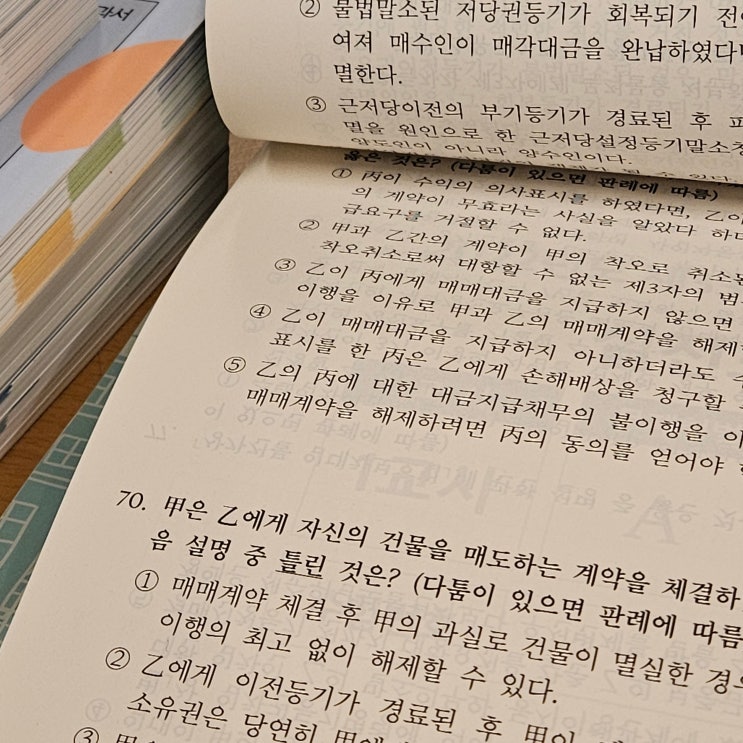 ② 불법말소된 저당권등기가 회복되기 전
여져 매수인이 매각대금을 완납하였다
멸한다.
③ 근저당이전의 부기등기가 경료된 후
멸을 원인으로 한 근저당설정등기말소
양도인이 아니라 양수인이다.
옳은 것은? (다툼이 있으면 판례에 따름)
① 丙이 수익의 의사표시를 하였다면, 乙이
의 계약이 무효라는 사실을 알았다 하
급요구를 거절할 수 없다.
② 甲과 乙간의 계약이 甲의 착오로 취소된
착오취소로써 대항할 수 없는 제3자의 범
③ 乙이 丙에게 매매대금을 지급하지 않으면
이행을 이유로 甲과 乙의 매매계약을 해제
④ 乙이 매매대금을 지급하지 아니하더라도
표시를 한 丙은 乙에게 손해배상을 청구할
⑤ 乙의 丙에 대한 대금지급채무의 불이행을 이
매매계약을 해제하려면 丙의 동의를 얻어야
70. 甲은 乙에게 자신의 건물을 매도하는 계약을 체결하
음 설명 중 틀린 것은? (다툼이 있으면 판례에 따름
① 매매계약 체결 후 甲의 과실로 건물이 멸실한 경
이행의 최고 없이 해제할 수 있다.
② 乙에게 이전등기가 경료된 후 甲이
소유권은 당연히 甲에
③